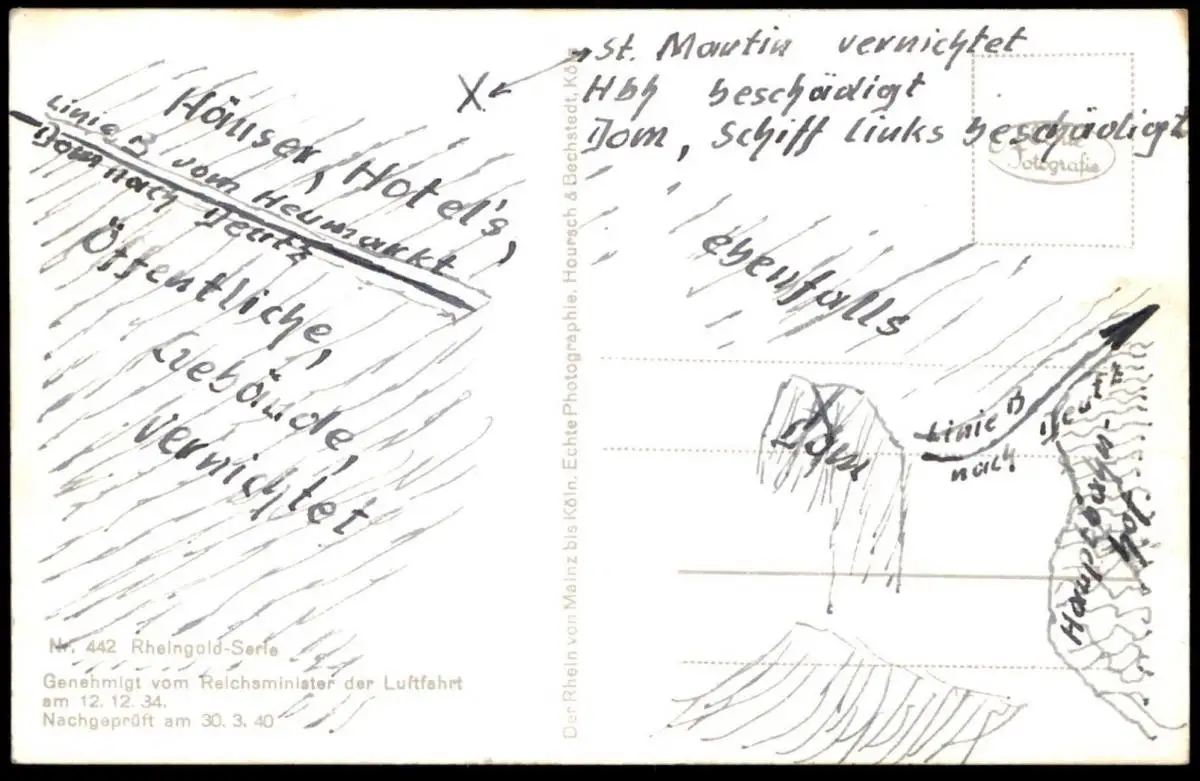 St. Martin vernichtet
Hbh beschädigt
Dom, Schiff links beschädigt
X
Häuser, Hotel's,
Linie B vom Heumarkt
Dom nach Deutz
Öffentliche,
Gebäude,
vernichtet
ebenfalls
Dom
Linie B
nach Deutz
Fotografie
Nr. 442 Rheingold-Serie
Genehmigt vom Reichsminister der Luftfahrt
am 12. 12. 34.
Nachgeprüft am 30. 3. 40
Der Rhein von Mainz bis Köln. Echte Photographie. Hoursch & Bechstedt, Köln